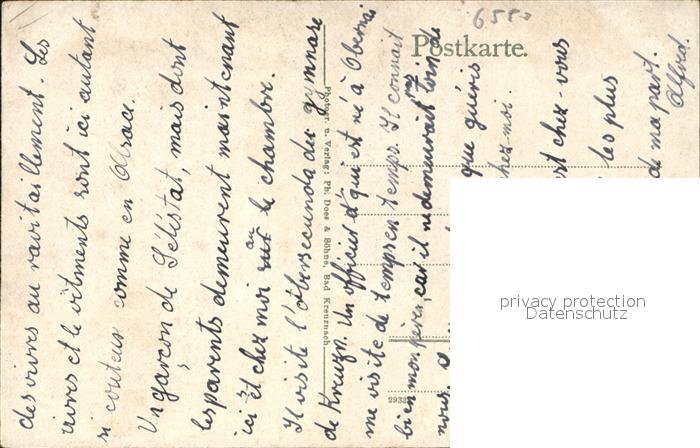 6580
Postkarte.
des vivres au ravitaillement. Les
vivres et le vêtments sont ici autant
si couteux comme en Alsace.
Un garçon de Sélestat, mais dont
les parents demeurent maintenant
ici est chez moi au sur le chambre.
Il visite l'Obersecunda du gymnase
de Kreuzn. Un officier qui est né à Obernai
me visite de temps en temps. Il connait
bien mon père, car il ne demeurait loin de
nous.
que guéris
chez-moi.
est chez-vous
les plus
de ma part.
Alfred.
Photogr. u. Verlag: Ph. Does & Söhne, Bad Kreuznach.
privacy protection
Datenschutz